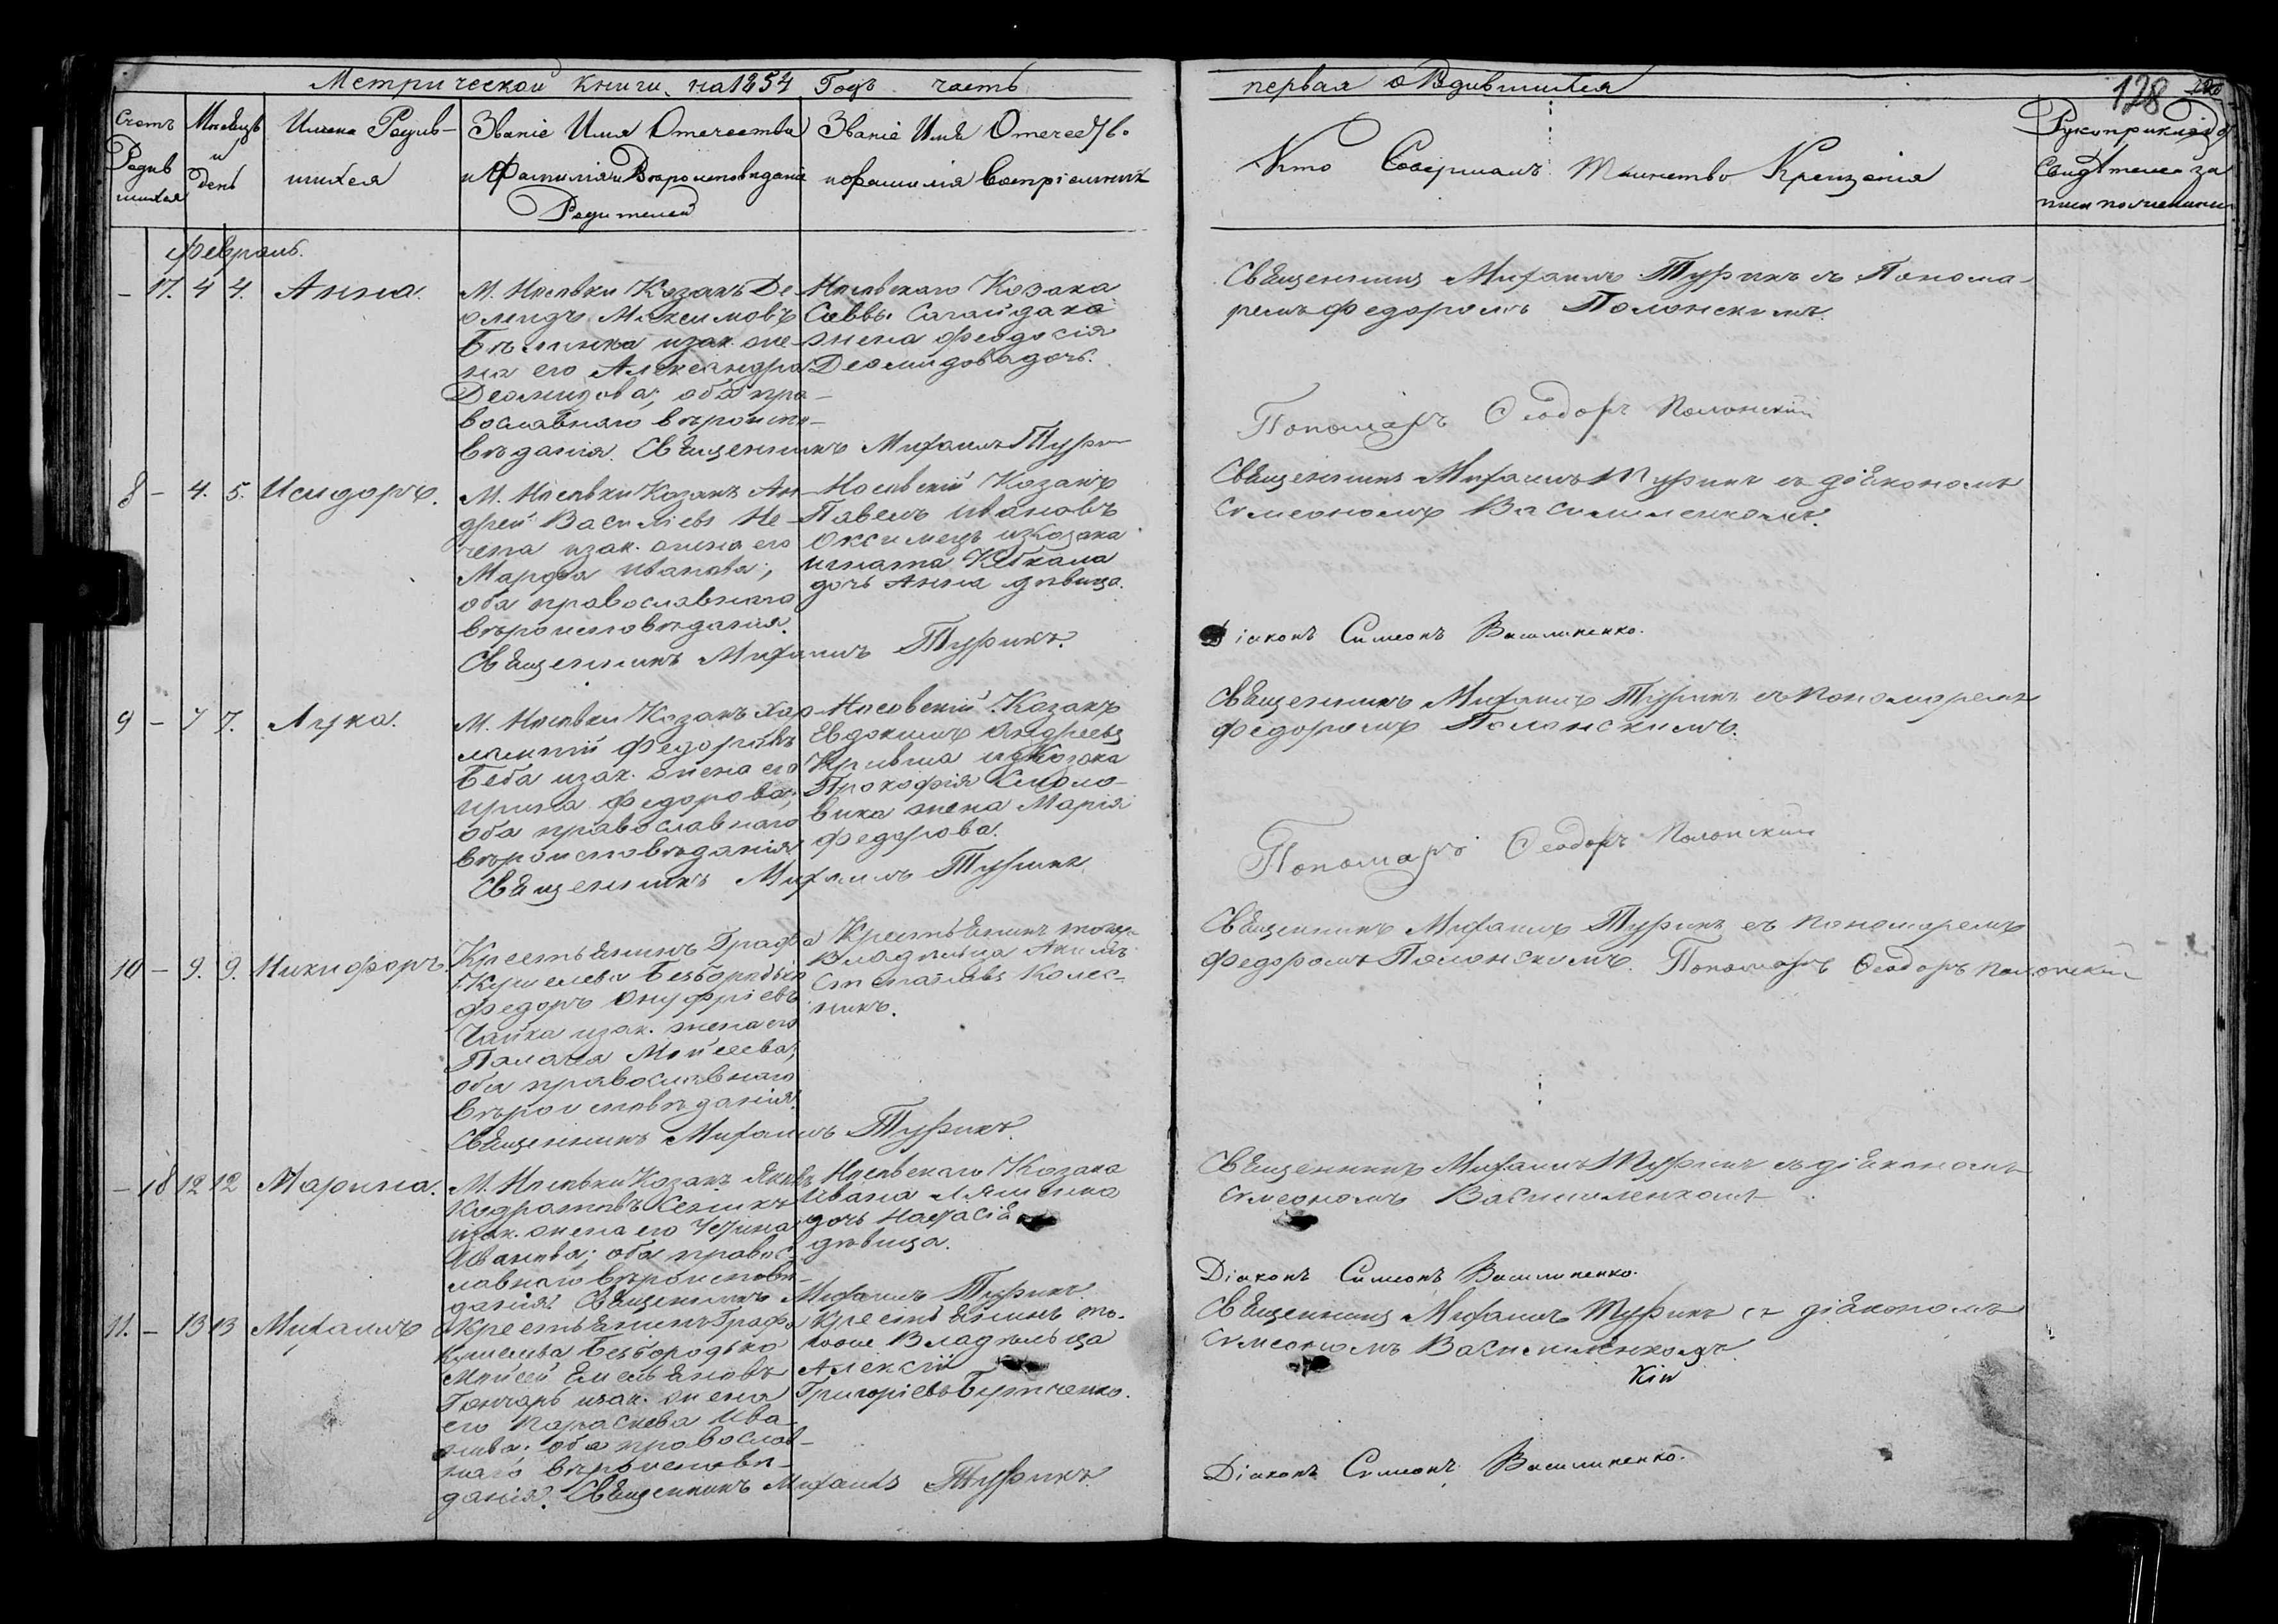 Метрической книги на 1854 Годъ часть
первая о Родившихся
128
Счетъ Родив шихся
Месяцъ и день
Имена Родив-
шихся
Званіе Имя Отечество
и Фамилія и Вероисповеданіе
Родителей
Званіе Имя Отечество
и фамилія Воспріемник
Кто Совершалъ Таинство Крещенія
Рукоприклад
Свидетелей за
писи по желанию
Февраль.
17. 4 4. Анна.
М. Носовки Козакъ Де-
омидъ Максимовъ
изак. же-
на его Александра
Деомидова; оба пра-
вославнаго вѣроиспо-
вѣданія. Священникъ Михаилъ Турин
Носовскаго Козака
Саввы Сагайдака
жена Феодосія
Деомидова дочь.
Священникъ Михаилъ Туринъ съ Понома-
ремъ Федоромъ Полонскимъ.
Пономарь Феодоръ Полонский
8 – 4. 5. Исидоръ.
М. Носовки Козакъ Ан-
дрей Василіевъ Не-
чепа изак. жена его
Марфа Иванова;
оба православнаго
вѣроисповѣданія.
Священникъ Михаилъ Туринъ.
Носовскій Козакъ
Павелъ Ивановъ
изКозака
Игната
дочь Анна дѣвица.
Священникъ Михаилъ Туринъ съ діякономъ
Симеономъ Василиненкомъ.
Діаконъ Симеонъ Василиненко.
9 – 7 7. Лука.
М. Носовки Козакъ Хар-
лампій Федоровъ
Беба изак. жена его
Ирина Федорова;
оба православнаго
вѣроисповѣданія
Священникъ Михаилъ Туринъ.
Носовский Козакъ
Евдокимъ Андреевъ
изКозака
Прокофія Смоло-
вика жена Марія
Федорова.
Священникъ Михаилъ Туринъ съ пономаремъ
Федоромъ Полонскимъ.
Пономарь Феодоръ Полонский
10 – 9. 9. Никифоръ.
Крестьянинъ Графа
Кушелева Безбородько
Федоръ Онуфріевъ
Чайка изак. жена его
Палагия Мойсеева;
оба православнаго
вѣроисповѣданія.
Священникъ Михаилъ Туринъ.
Крестьянинъ тогож
Владѣльца Акимъ
Колес-
никъ.
Священникъ Михаилъ Туринъ съ пономаремъ
Федоромъ Полонскимъ. Пономарь Феодоръ Полонский
– 18 12 12 Марина.
М. Носовки Козакъ Яковъ
Кодратовъ
изак. жена его
Иванова; оба правос-
лавнаго вѣроисповѣ-
данія Священникъ Михаилъ Туринъ.
Носовскаго Козака
Ивана Ляшенка
дочь Настасія
дѣвица.
Священникъ Михаилъ Туринъ съ діякономъ
Симеономъ Василиненкомъ.
Діаконъ Симеонъ Василиненко.
11. – 13 13 Михаилъ
Крестьянинъ Графа
Кушелева Безбородько
Мойсей Емельяновъ
Гончаръ изак. жена
его Параскева Ива-
нова; оба православ-
наго вѣроисповѣ-
данія. Священникъ Михаилъ Туринъ.
Крестьянинъ то-
гоже Владѣльца
Алексій
Григоріевъ Бутченко.
Священникъ Михаилъ Туринъ съ діякономъ
Симеономъ Василиненкомъ.
Діаконъ Симеонъ Василиненко.